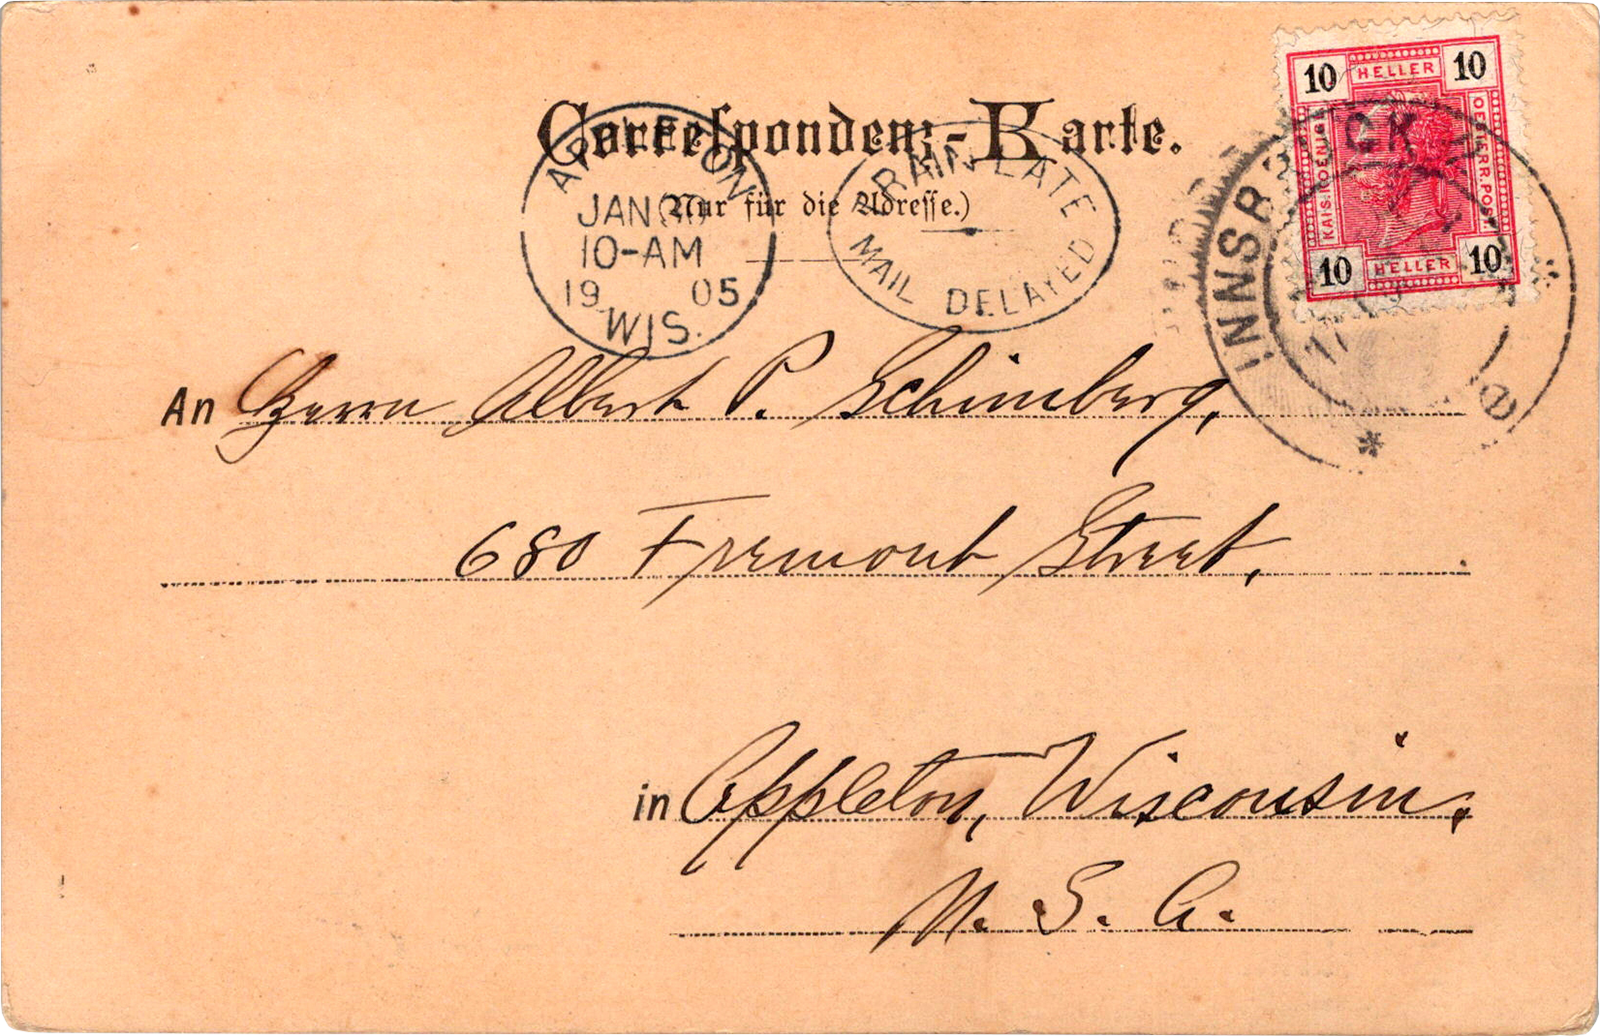 Correspondenz-Karte.
(Nur für die Adresse.)
APPLETON
JAN
10-AM
19 05
WIS.
TRAIN LATE
MAIL DELAYED
10 HELLER 10
KAIS. KOENIGL.
OESTERR. POST
10 HELLER 10
INNSBRUCK
An Herrn Albert P. Schimberg,
680 Fremont Street.
in Appleton, Wisconsin,
U. S. A.